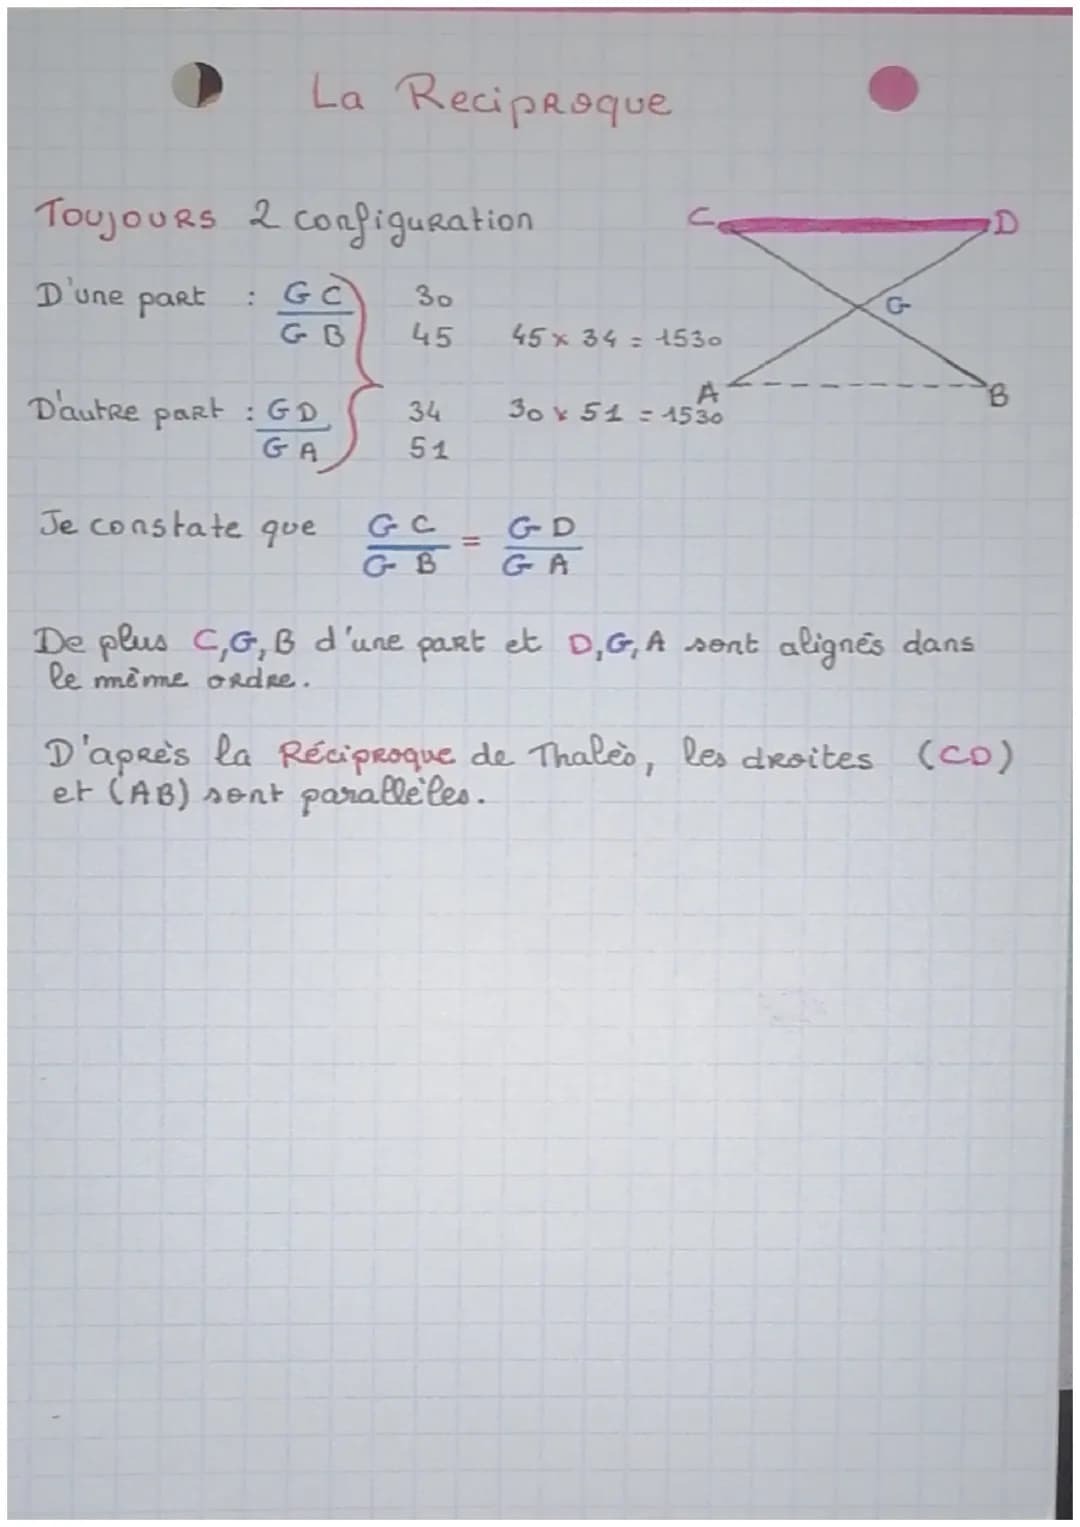 La Reciproque
Toujours 2 configuration
C D
D'une part : GC 30
GB 45 45 x 34 = 1530
G
A B
D'autre part : GD 34 30 x 51 = 1530
GA 51
Je constate que GC = GD
GB GA
De plus C,G,B d'une part et D,G,A sont alignés dans
le même ordre.
D'après la Réciproque de Thalès, les droites (CD)
et (AB) sont parallèles.